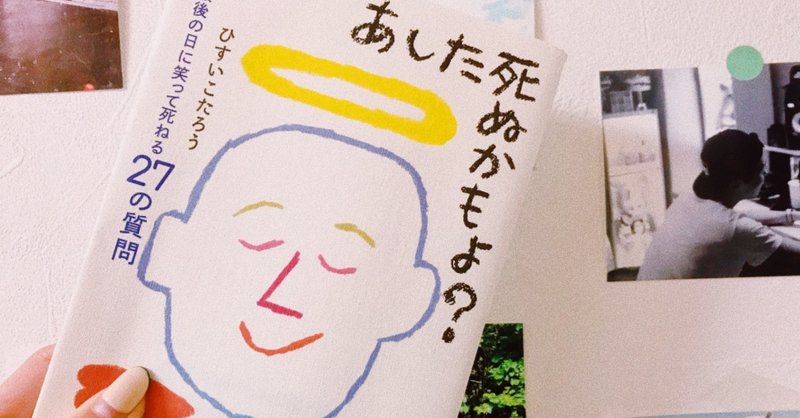 あした死ぬかもよ?
ひすいこたろう
後の日に笑って死ねる
27の質問